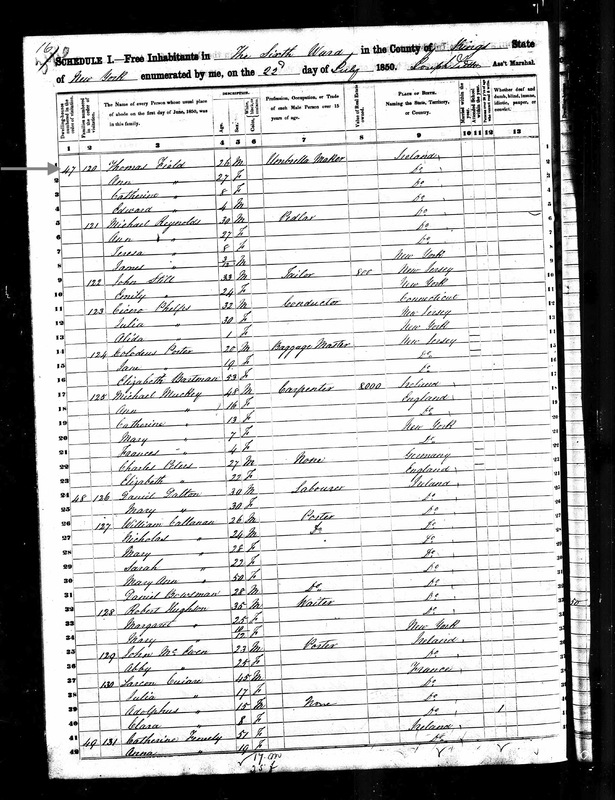 SCHEDULE I.—Free Inhabitants in The Sixth Ward, in the County of Kings State
of New York enumerated by me, on the 22d day of July 1850. Joseph Ass't Marshal.
Dwelling-houses numbered in the order of visitation. Families numbered in the order of visitation. The Name of every Person whose usual place of abode on the first day of June, 1850, was in this family. DESCRIPTION. Age. Sex. Color. Profession, Occupation, or Trade of each Male Person over 15 years of age. Value of Real Estate owned. PLACE OF BIRTH. Naming the State, Territory, or Country. Married within the year. Attended School within the year. Whether deaf and dumb, blind, insane, idiotic, pauper, or convict.
1 2 3 4 5 6 7 8 9 10 11 12 13
1 47 120 Thomas Field 26 M Umbrella Maker Ireland
2 Ann " 27 F Do
3 Catherine " 8 F Do
4 Edward " 4 M Do
5 121 Michael Reynolds 30 M Pedlar Do
6 Ann " 27 F Do
7 Teresa " 8 F Do
8 James " M New York
9 122 John Still 33 M Tailor 800 New Jersey
10 Emily " 24 F New York
11 123 Cicero Phelps 32 M Conductor Connecticut
12 Julia " 30 F New Jersey
13 Alida " 1 F New York
14 124 Porter 20 M Baggage Master New Jersey
15 Jane " 19 F Do
16 Elizabeth Bartman 53 F Do
17 125 Michael Muckey 48 M Carpenter 8000 Ireland
18 Ann " 16 F England
19 Catherine " 13 F Do
20 Mary " 7 F New York
21 Frances " 4 F Do
22 Charles 27 M None Germany
23 Elizabeth " 22 F England
24 48 126 Daniel Dalton 30 M Labourer Ireland
25 Mary " 30 F Do
26 127 William Callanan 26 M Porter Do
27 Nicholas " 24 M Do Do
28 Mary " 28 F Do
29 Sarah " 22 F Do
30 Mary Ann " 50 F Do
31 Daniel Bowsman 28 M Do Do
32 128 Robert Hughson 35 M Waiter Do
33 Margaret " 25 F Do
34 Mary " 10/12 F New York
35 129 John McEwen 23 M Porter Ireland
36 Abby " 25 F Do
37 130 45 M France
38 Julia " 17 F Do
39 Adolphus " 15 M None Do 1
40 Clara " 8 F Do
41 49 131 Catherine 57 F Ireland
42 Anna " 19 F Do
17 M
25 F